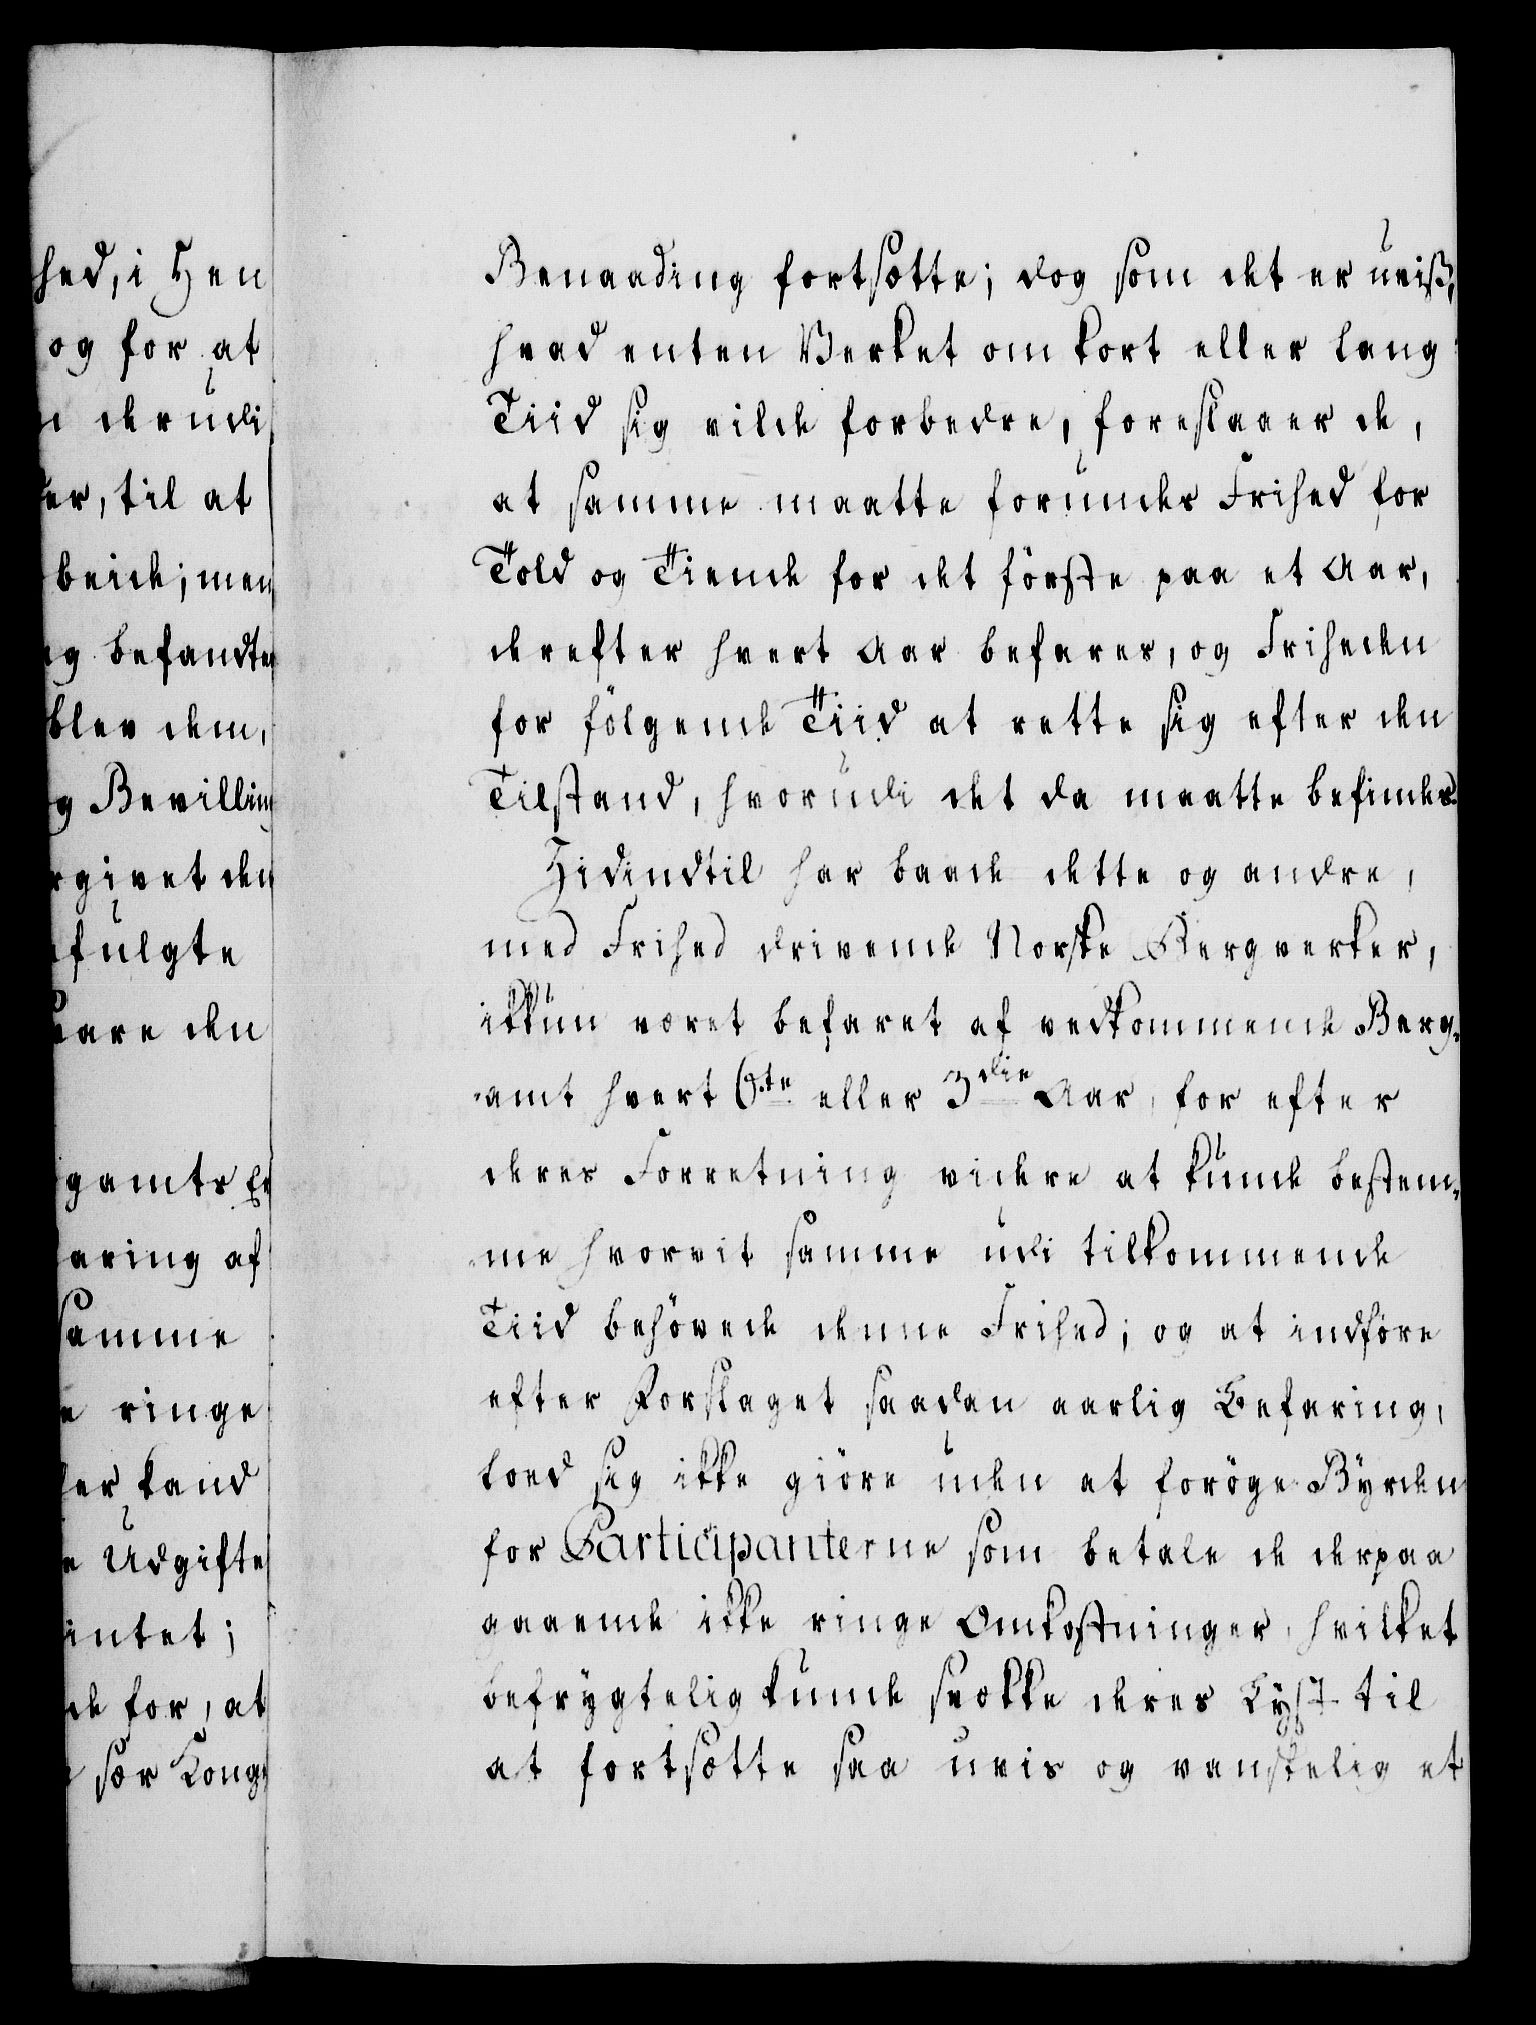 hed, i Hen
og for at
derudi
er, til at
beide; men
og befandtes
blev dem,
og Bevilling
givet den
fulgte
vare den
gamts Er
aring af
samme
e ringe
ler kand
e Udgifte
intet;
de for, at
sær Kong
Benaading fortsætte; dog som det er uviß,
hvad enten Verket om kort eller lang
Tiid sig vilde forbedre, foreslaaer de,
at samme maatte forundes Frihed for
Told og Tiende for det förste paa et Aar,
derefter hvert Aar befares, og Friheden
for fölgende Tiid at rette sig efter den
Tilstand, hvorudi det da maatte befindes.
Hidindtil har baade dette og andre,
med Frihed drivende Norske Bergverker,
ikkun været befaret af vedkommende Berg-
-amt hvert 6.te eller 3die Aar, for efter
deres Forretning videre at kunde bestem-
-me hvorvit samme udi tilkommende
Tiid behövede denne Frihed; og at indföre
efter Forslaget saadan aarlig Befaring,
loed sig ikke giöre uden at foröge Byrden
for Participanterne som betale de derpaa
gaaende ikke ringe Omkostninger, hvilket
befrygtelig kunde svække deres Lyst til
at fortsætte saa uvis og vanskelig et